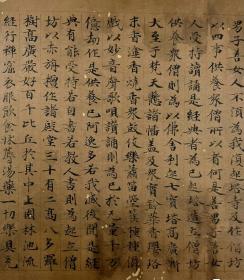 男子善女人不須為我復起塔寺及作僧坊
以四事供養衆僧所以者何是善男子善女
人受持讀誦是經典者為已起塔造立僧坊
供養衆僧則為以佛舍利起七寶塔高廣漸
小至于梵天懸諸幡蓋及衆寶鈴華香瓔珞
末香塗香燒香衆鼓伎樂簫笛箜篌種種儛
戲以妙音聲歌唄讚頌則為已於無量千万
億劫作是供養已阿逸多若我滅後聞是經
典有能受持若自書若教人書則為起立僧
坊以赤栴檀作諸殿堂三十有二高八多羅
樹高廣嚴好百千比丘於其中止園林浴池
經行禪窟衣服飲食床褥湯藥一切樂具充